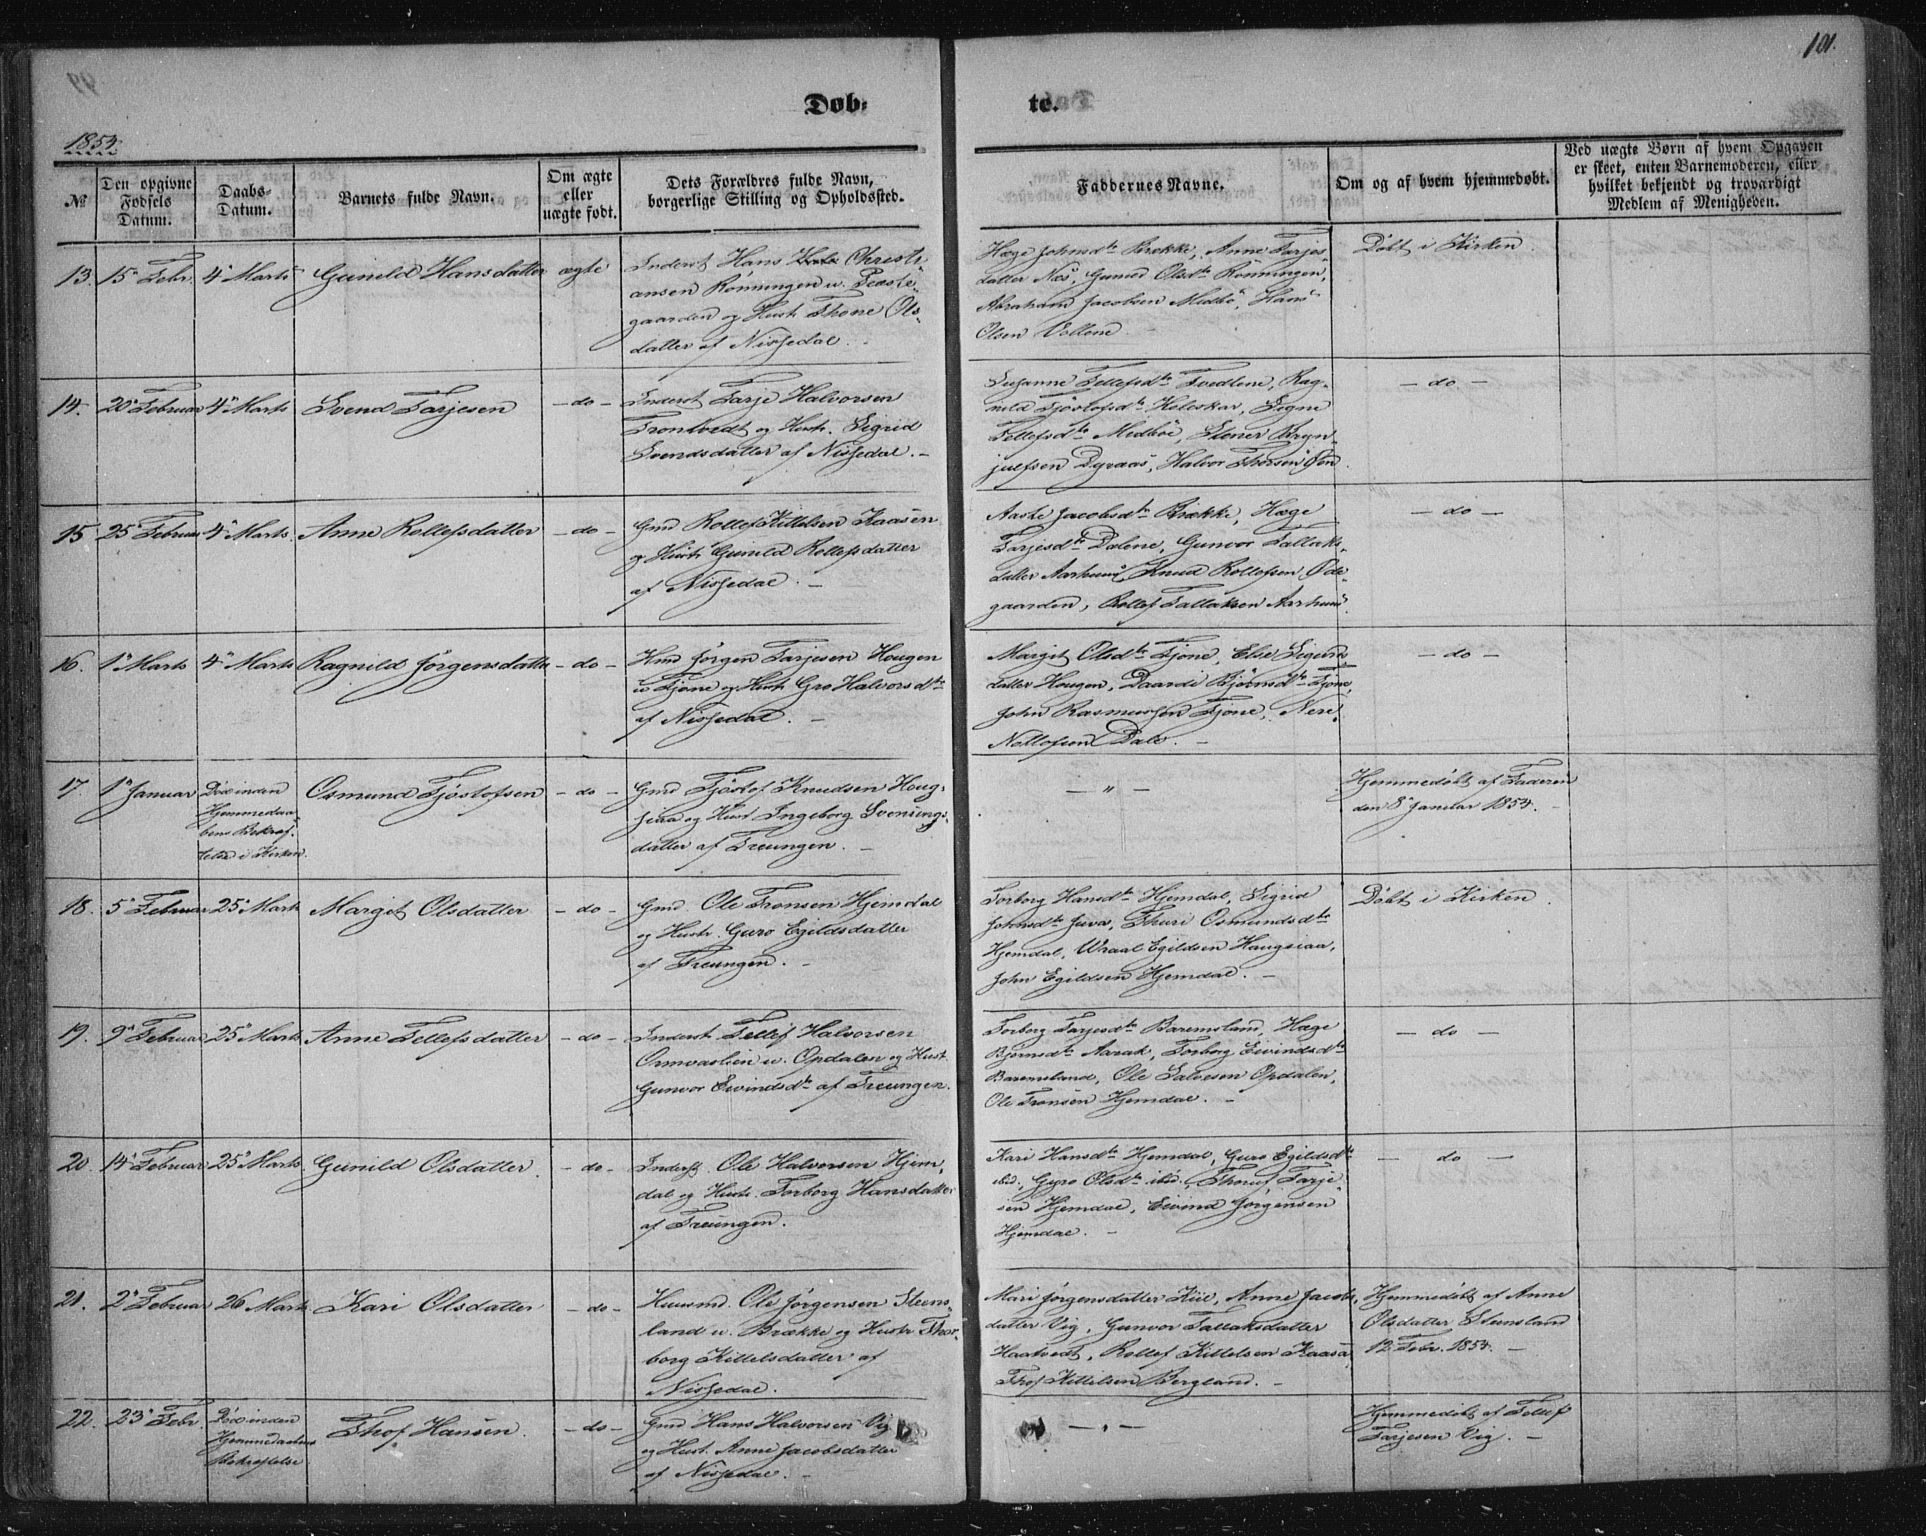 101.
Døb-
te.
1854.
№
Den opgivne
Fødsels
Datum.
Daabs-
Datum.
Barnets fulde Navn.
Om ægte
eller
uægte født.
Dets Forældres fulde Navn,
borgerlige Stilling og Opholdssted.
Faddernes Navne.
Om og af hvem hjemmedøbt.
Ved uægte Børn af hvem Opgaven
er skeet, enten Barnemoderen, eller
hvilket bekjendt og troværdigt
Medlem af Menigheden.
13. 15de Febr. 4de Marts Gunild Hansdatter ægte
Inderst Hans Christi-
ansen Rønningen u. Præste-
gaarden og Hustr. Thone Ols-
datter af Nissedal.
Hæge Johnsdtr Brække, Anne Tarjes-
datter Næs, Gunild Olsdtr Rønningen,
Abraham Jacobsen Midbø, Hans
Olsen Vollene
Døbt i Kirken
14. 20de Februar 4de Marts Svend Tarjesen -do-
Inderst Tarje Halvorsen
Trontvedt og Hustr. Sigrid
Svendsdatter af Nissedal.-
Susanne Tellefsdtr Tvedtene, Rag-
nild Tjøstofsdtr Holeskar, Signe
Tellefsdtr Midbøe, Stener Bryn-
julfsen Dyraas, Halvor Thorsen Øen.
- do -
15. 25de Februar 4de Marts. Anne Rollefsdatter -do-
Gmd Rollef Kittelsen Kaasen
og Hustr Gunild Rollefsdatter
af Nissedal. -
Aaste Jacobsdtr Brække, Hæge
Tarjesdtr Dalene, Gunvor Tallaks-
datter Aarhuus, Knud Rollefsen Øde-
gaarden, Rollef Tallaksen Aarhuus.
- do -
16. 1de Marts 4de Marts Ragnild Jørgensdatter -do-
Hmd Jørgen Tarjesen Hougen
u Fjone og Hustr Gro Halvorsdtr
af Nissedal. -
Margit Olsdtr Fjone, Else Sigurds-
datter Hougen, Daarde Bjørnsdtr Fjone,
John Rasmussen Fjone, Nere
Nottofsen Dale. -
- do -
17. 1de Januar Død inden
Hjemmedaa-
bens Bekræf-
telse i Kirken.
Osmund Tjøstofsen -do-
Gmd Tjøstof Knudsen Houg-
siaa og Hustr Ingeborg Svenungs-
datter af Treungen. -
- " -
Hjemmedøbt af Faderen
den 8de Januar 1854. -
18. 5de Februar 25de Marts Margit Olsdatter -do-
Gmd. Ole Tronsen Hjemdal
og Hustr. Guro Egildsdatter
af Treungen. -
Torborg Hansdtr Hjemdal, Sigrid
Johnsdtr Juvas, Thuri Osmundsdtr
Hjemdal, Wraal Egildsen Haugsiaa,
John Egildsen Hjemdal. -
Døbt i Kirken.
19. 9de Februar 25de Marts Anne Tellefsdatter -do-
Inderst. Tellef Halvorsen
Ormvaslien u. Opdalen og Hustr
Gunvor Eivindsdtr af Treungen.
Torborg Tarjesdtr Baremsland, Hæge
Bjørnsdtr Aarak, Torborg Eivindsdtr
Baremsland, Ole Salvesen Opdalen,
Ole Tronsen Hjemdal. -
- do -
20. 14de Februar 25de Marts Gunild Olsdatter. -do-
Inderst. Ole Halvorsen Hjem-
dal og Hustr. Torborg Hansdatter
af Treungen.
Kari Hansdtr Hjemdal, Guro Egildsdtr
ibid., Gyro Olsdtr ibid., Thoruf Tarje-
sen Hjemdal, Eivind Jørgensen
Hjemdal. -
- do -
21. 2de Februar 26 Marts Kari Olsdatter -do-
Huusmd. Ole Jørgensen Steens-
land u. Brække og Hustr Thor-
borg Kittelsdatter af
Nissedal.
Mari Jørgensdatter Kiil, Anne Jacobs-
datter Vig, Gunvor Tallaksdatter
Haatvedt, Rollef Kittelsen Kaasa
Thof Kittelsen Bergland. -
Hjemmedøbt af Anne
Olsdatter Stensland
12 Febr. 1854. -
22. 23de Febr. Død inden
Hjemmedaabens
Bekræftelse
Thof Hansen. -do-
Gmd Hans Halvorsen Vig
og Hust. Anne Jacobsdatter
af Nissedal. -
- " -
Hjemmedøbt af Tellef
Tarjesen Vig. -